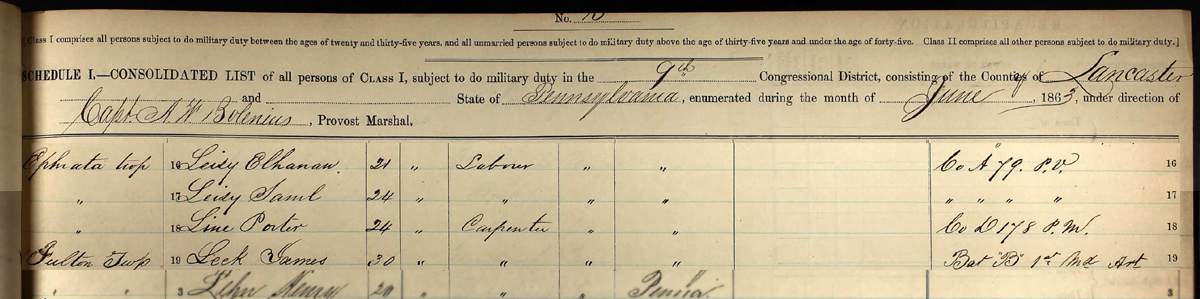 No. 10
Class I comprises all persons subject to do military duty between the ages of twenty and thirty-five years, and all unmarried persons subject to do military duty above the age of thirty-five years and under the age of forty-five. Class II comprises all other persons subject to do military duty.]
SCHEDULE I.—CONSOLIDATED LIST of all persons of CLASS I, subject to do military duty in the 9th Congressional District, consisting of the County of Lancaster
and State of Pennsylvania, enumerated during the month of June, 1863, under direction of
Capt. A W Bolenius, Provost Marshal,
Ephrata twp 16 Leisy Elhanan. 21 " Laborer " " Co A 79. P.V. 16
" 17 Leisy Saml 24 " " " " " " " " 17
" 18 Line Porter 24 " Carpenter " " Co D 178 P.M. 18
Fulton Twp 19 Leck James 30 " " " " Bat "B" 1st Md Art 19
" " 3 Henry 20 " " " Penna 3